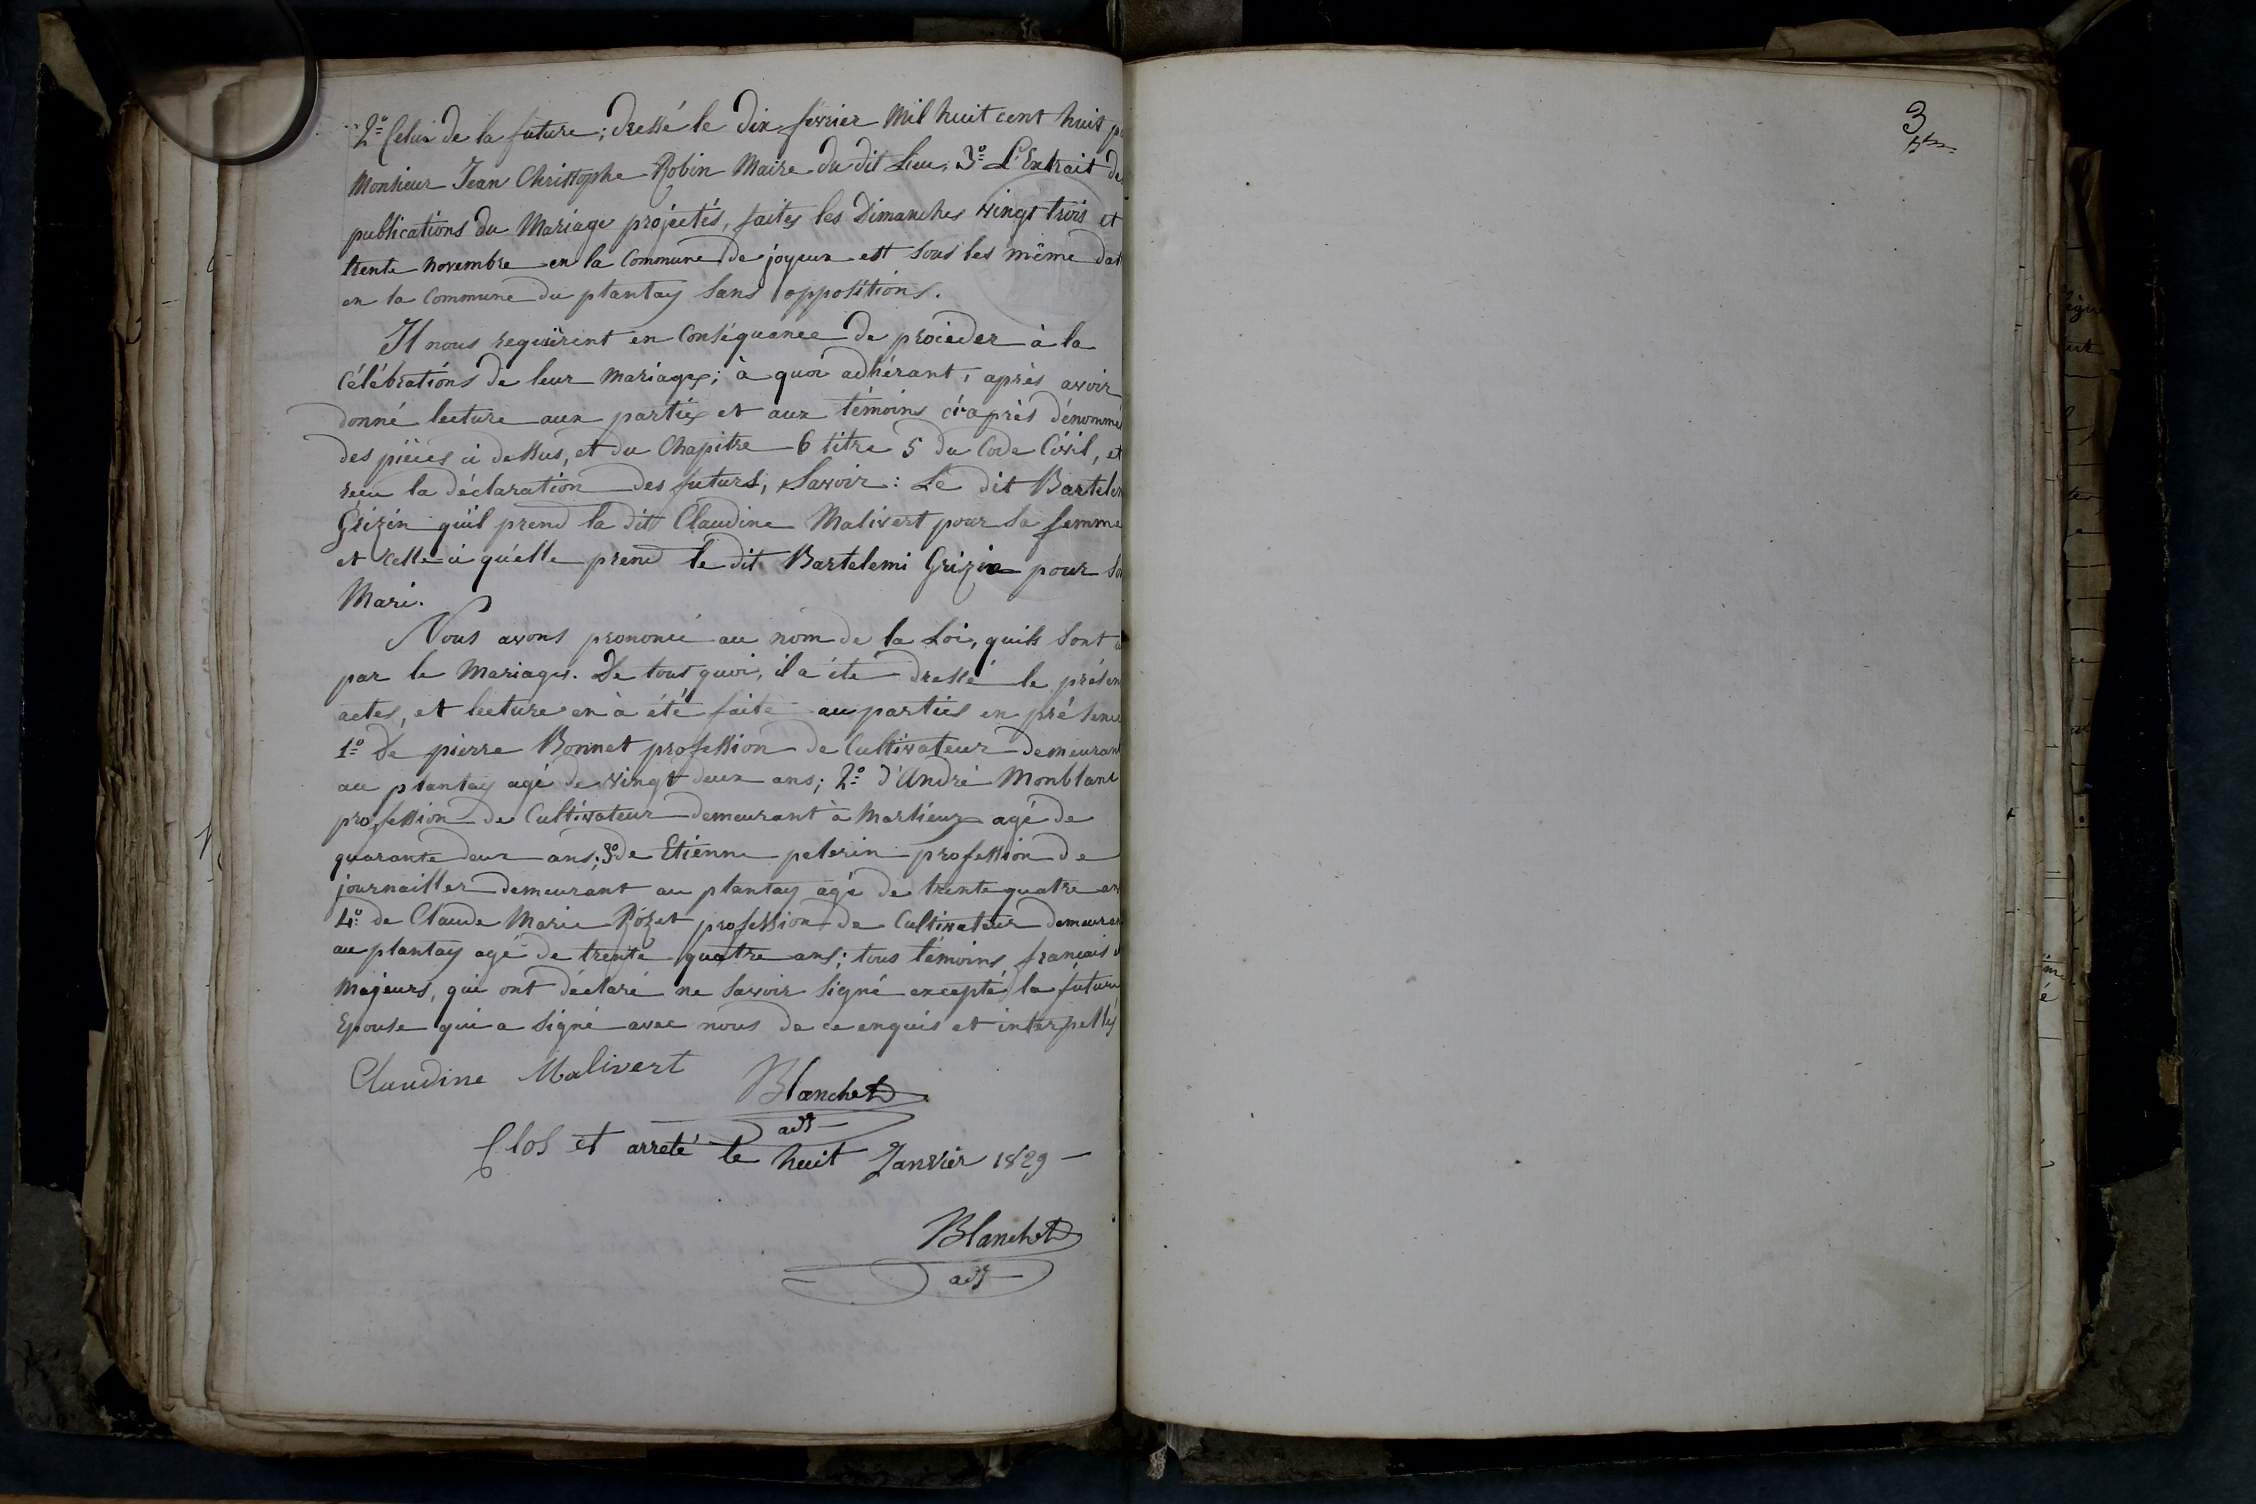 2° Celui de la future; dressé le dix février mil huit cent huit
Monsieur Jean Christophe Robin Maire du dit Lieu, 3° L'Extrait de
publications du Mariage projettés, faites les Dimanches vingt trois et
trente novembre en la Commune de joyeux est sous les même dat
en la Commune du plantay sans oppositions.
Il nous requirent en Conséquance de procéder à la
Célébrations de leur mariage; à quoi adhérant, après avoir
donné lecture aux parties et aux témoins ci-après dénommé
des pièces ci dessus, et du Chapitre 6 titre 5 du Code Civil, et
reçu la déclaration des futurs, Savoir: Le dit Bartele
Grizin qu'il prend la dit Claudine Malivert pour sa femme
et celle ci qu'elle prend le dit Bartelemi Grizin pour so
Mari.
Nous avons prononcé au nom de la Loi, quils sont
par le Mariages. De tout quoi, il a été dressé le présen
actes, et lecture en à été faite au parties en présence
1° De pierre Bonnet profession de Cultivateur demeurant
au plantay agé de vingt deux ans; 2° d'André Monblanc
profession de Cultivateur demeurant à Marlieux agé de
quarante deux ans; 3° de Etienne pelerin profession de
journailler demeurant au plantay agé de trente quatre an
4° de Claude Marie Rozet profession de Cultivateur demeuran
au plantay agé de trente quatre ans; tous témoins francais
Majeurs, qui ont déclaré ne savoir signé excepté la future
Epouse qui a signé avec nous de ce enquis et interpellés
Claudine Malivert Blanchet
adt
Clos et arreté le huit Janvier 1829
Blanchet
adt
3